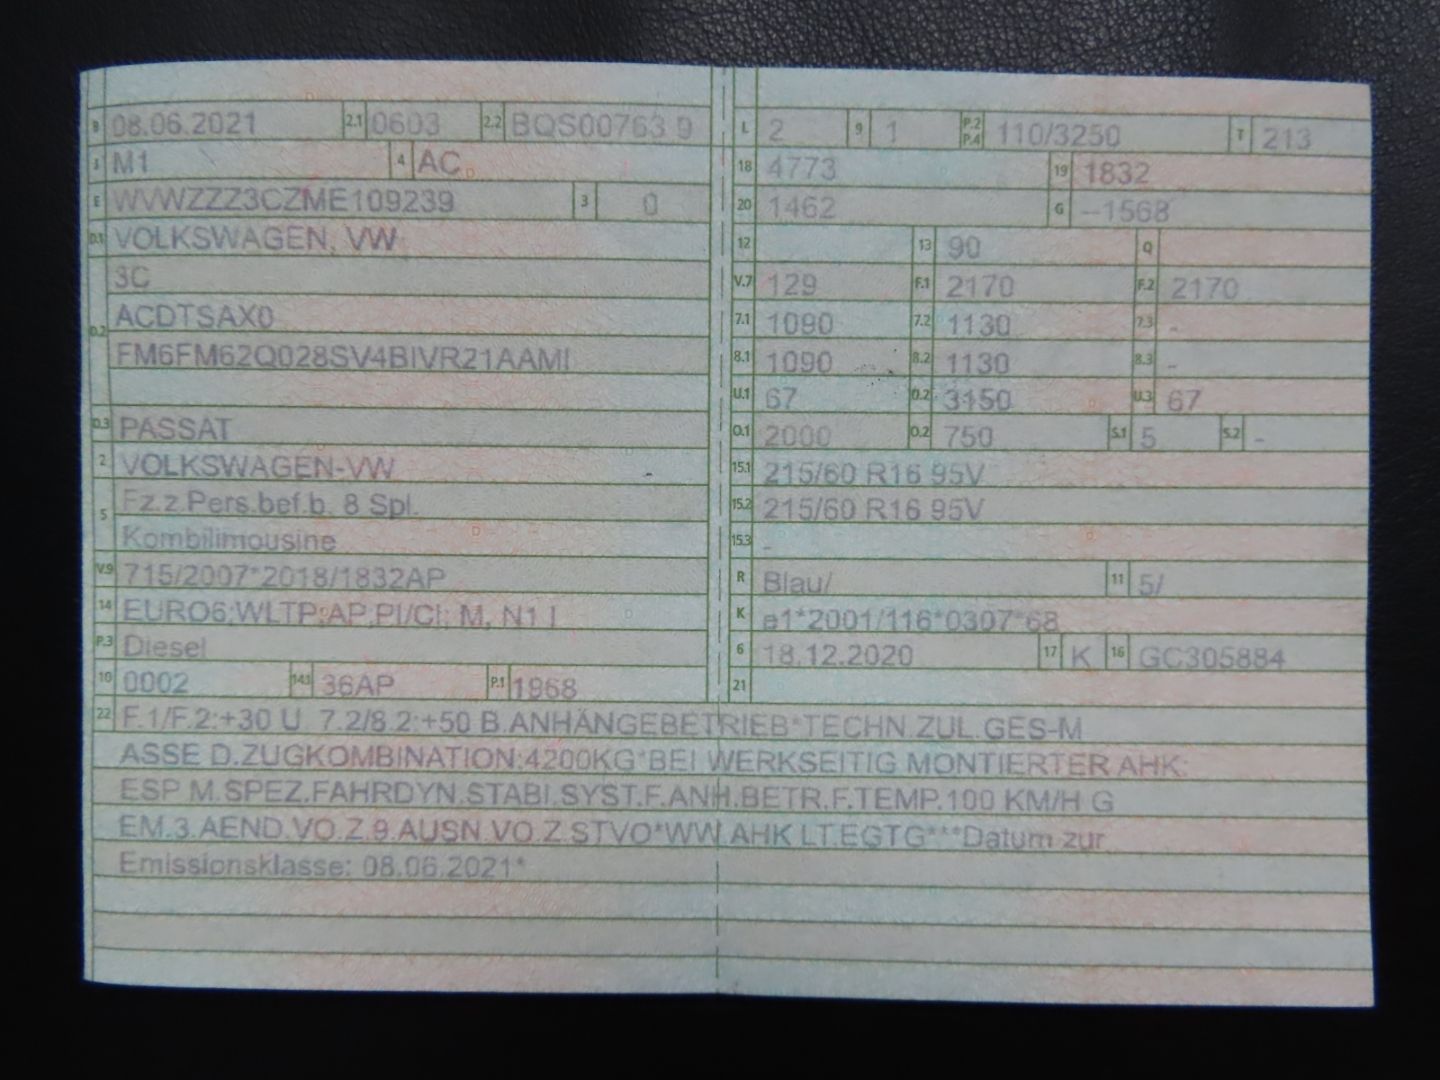 B 08.06.2021 2.1 0603 2.2 BQS00763 9
J M1 4 AC
E WVWZZZ3CZME109239 3 0
D.1 VOLKSWAGEN, VW
3C
D.2 ACDTSAX0
FM6FM62Q028SV4BIVR21AAMI
D.3 PASSAT
2 VOLKSWAGEN-VW
5 Fz.z.Pers.bef.b. 8 Spl.
Kombilimousine
V.9 715/2007*2018/1832AP
14 EURO6;WLTP;AP;PI/CI; M, N1 I
P.3 Diesel
10 0002 14.1 36AP P.1 1968
L 2 9 1 P.2 P.4 110/3250 T 213
18 4773 19 1832
20 1462 G --1568
12 13 90 Q
V.7 129 F.1 2170 F.2 2170
7.1 1090 7.2 1130 7.3 -
8.1 1090 8.2 1130 8.3 -
U.1 67 U.2 3150 U.3 67
O.1 2000 O.2 750 S.1 5 S.2 -
15.1 215/60 R16 95V
15.2 215/60 R16 95V
15.3 -
R Blau/ 11 5/
K e1*2001/116*0307*68
6 18.12.2020 17 K 16 GC305884
21
22 F.1/F.2:+30 U. 7.2/8.2:+50 B.ANHÄNGEBETRIEB*TECHN.ZUL.GES-M
ASSE D.ZUGKOMBINATION:4200KG*BEI WERKSEITIG MONTIERTER AHK:
ESP M.SPEZ.FAHRDYN.STABI.SYST.F.ANH.BETR.F.TEMP.100 KM/H G
EM.3.AEND.VO.Z.9.AUSN.VO.Z.STVO*WW.AHK LT.EGTG***Datum zur
Emissionsklasse: 08.06.2021*